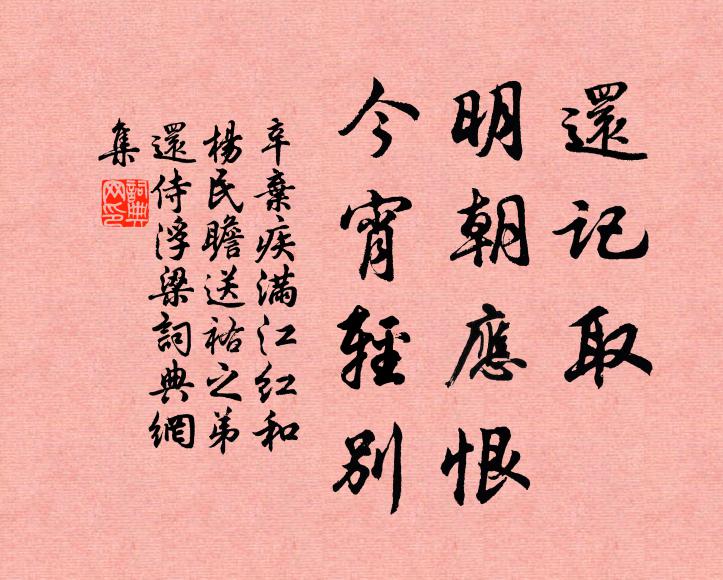 還記取
明朝應恨
今宵輕別
辛棄疾滿江紅和
楊民瞻送祐之弟
還侍浮梁詞典網
集
詞典
网印